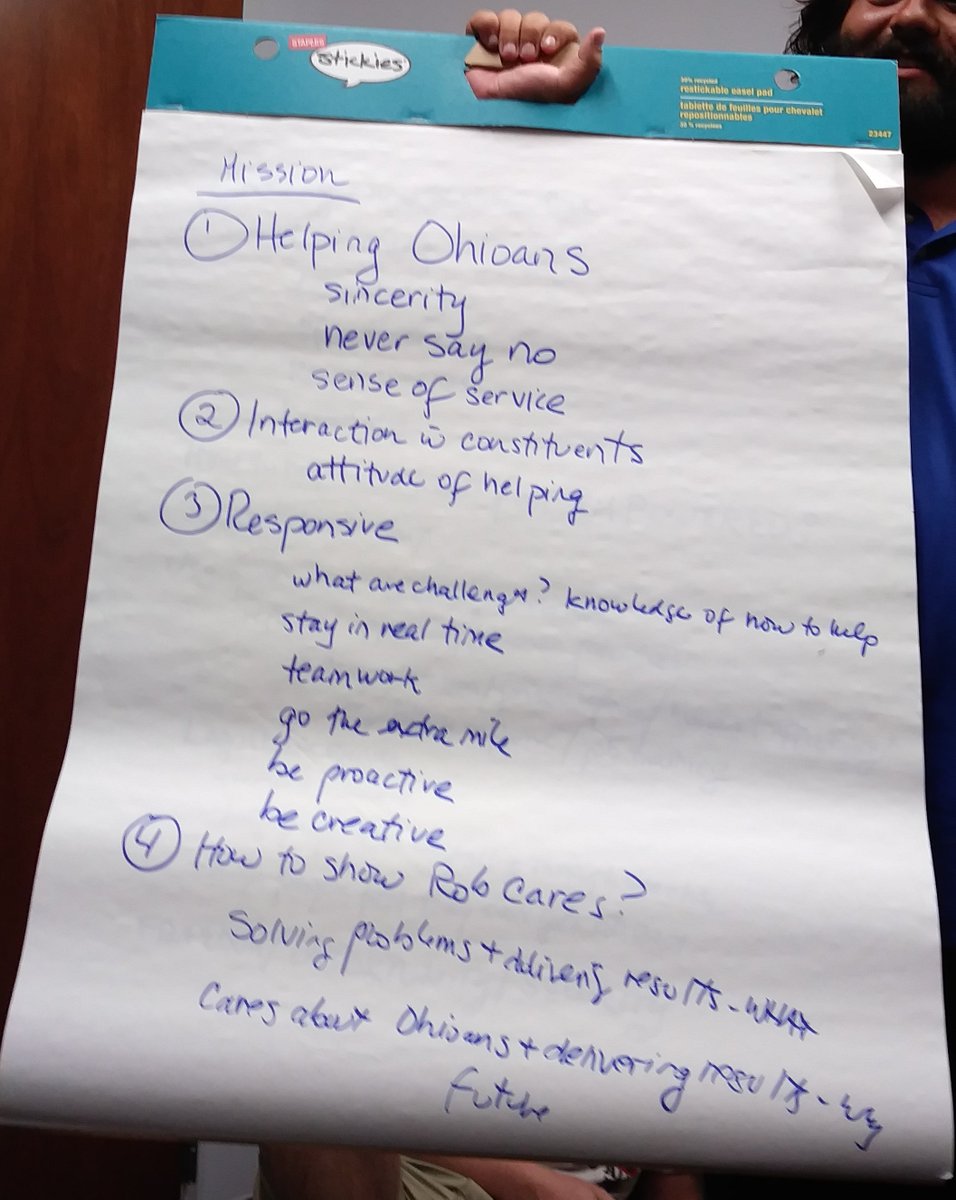 STAPLES
stickies
30% recycled
restickable easel pad
tablette de feuilles pour chevalet
repositionnables
30 % recyclées
23447
Mission
1 Helping Ohioans
sincerity
never say no
sense of service
2 Interaction w̄ constituents
attitude of helping
3 Responsive
what are challenges? knowledge of how to help
stay in real time
teamwork
go the extra mile
be proactive
be creative
4 How to show Rob Cares?
Solving problems + delivering results - WHAT
Cares about Ohioans + delivering results - why
future